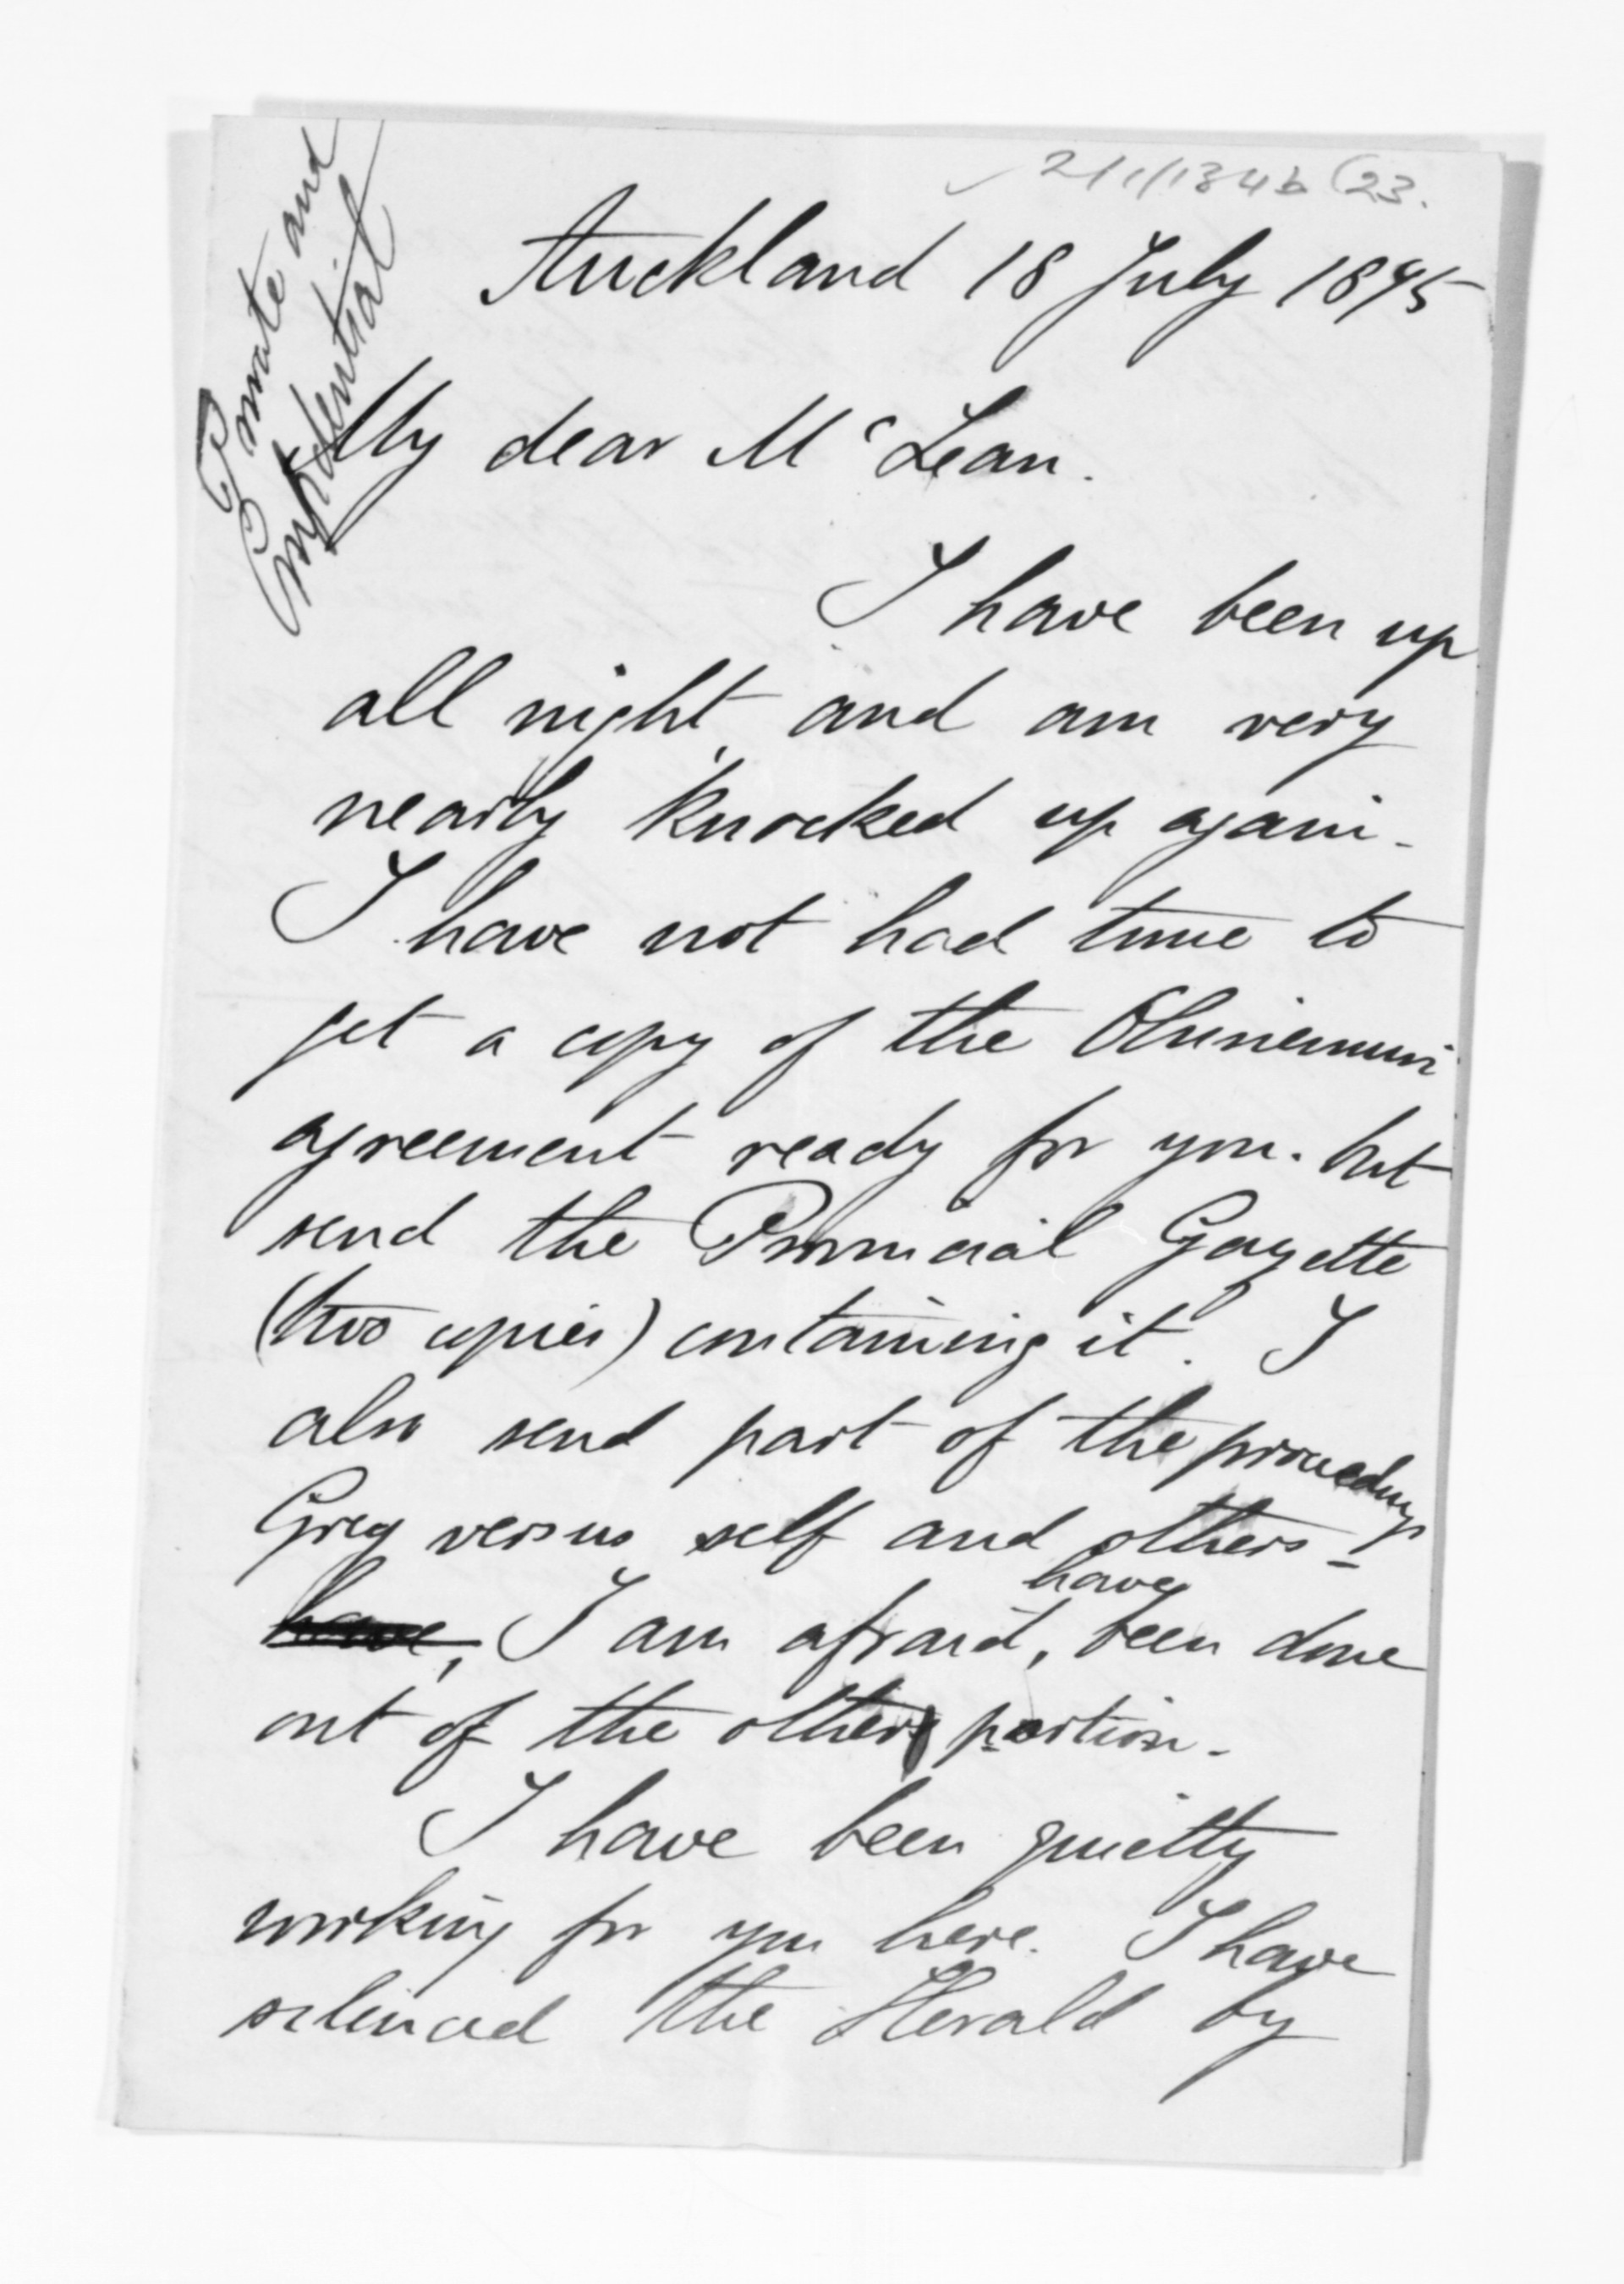 Private and
Confidential
2/1/134b (23.
Auckland 18 July 1875
My dear McLean.
I have been up
all night, and am very
nearly knocked up again -
I have not had time to
get a copy of the Ohinemuri
agreement ready for you. but
send the Provincial Gazette
(two copies) containing it. I
also send part of the proceedings
Grey versus self and others -
have
have, I am afraid, been done
out of the other portion -
I have been quietly
working for you here. I have
silenced the Herald by